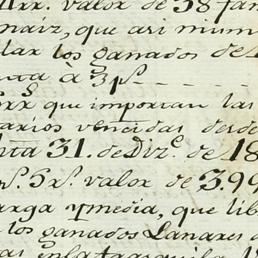 valor de 38 fan
maiz, que asi mism
los ganados de
a 3 p.s
que importan las
vencidas desde
31. de Diz.e de 18
p.s 5 r.s valor de 3.99
arga y media, que lib
los ganados Lanares